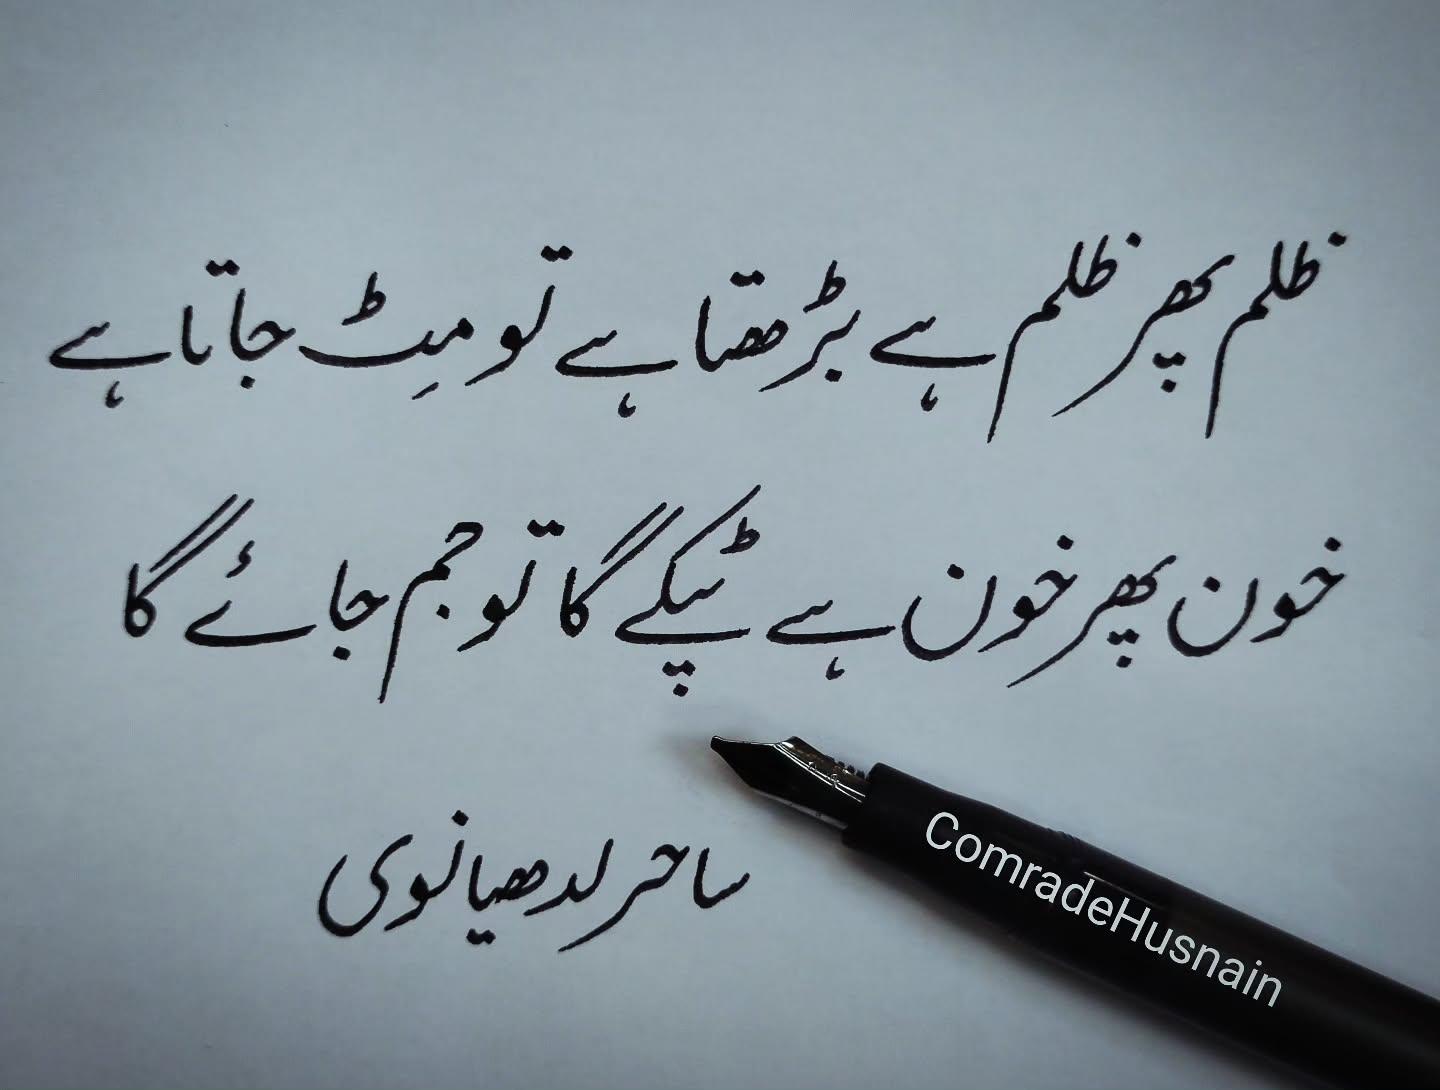 ظلم پھر ظلم ہے بڑھتا ہے تو مِٹ جاتا ہے
خون پھر خون ہے ٹپکے گا تو جم جائے گا
ساحر لدھیانوی
ComradeHusnain